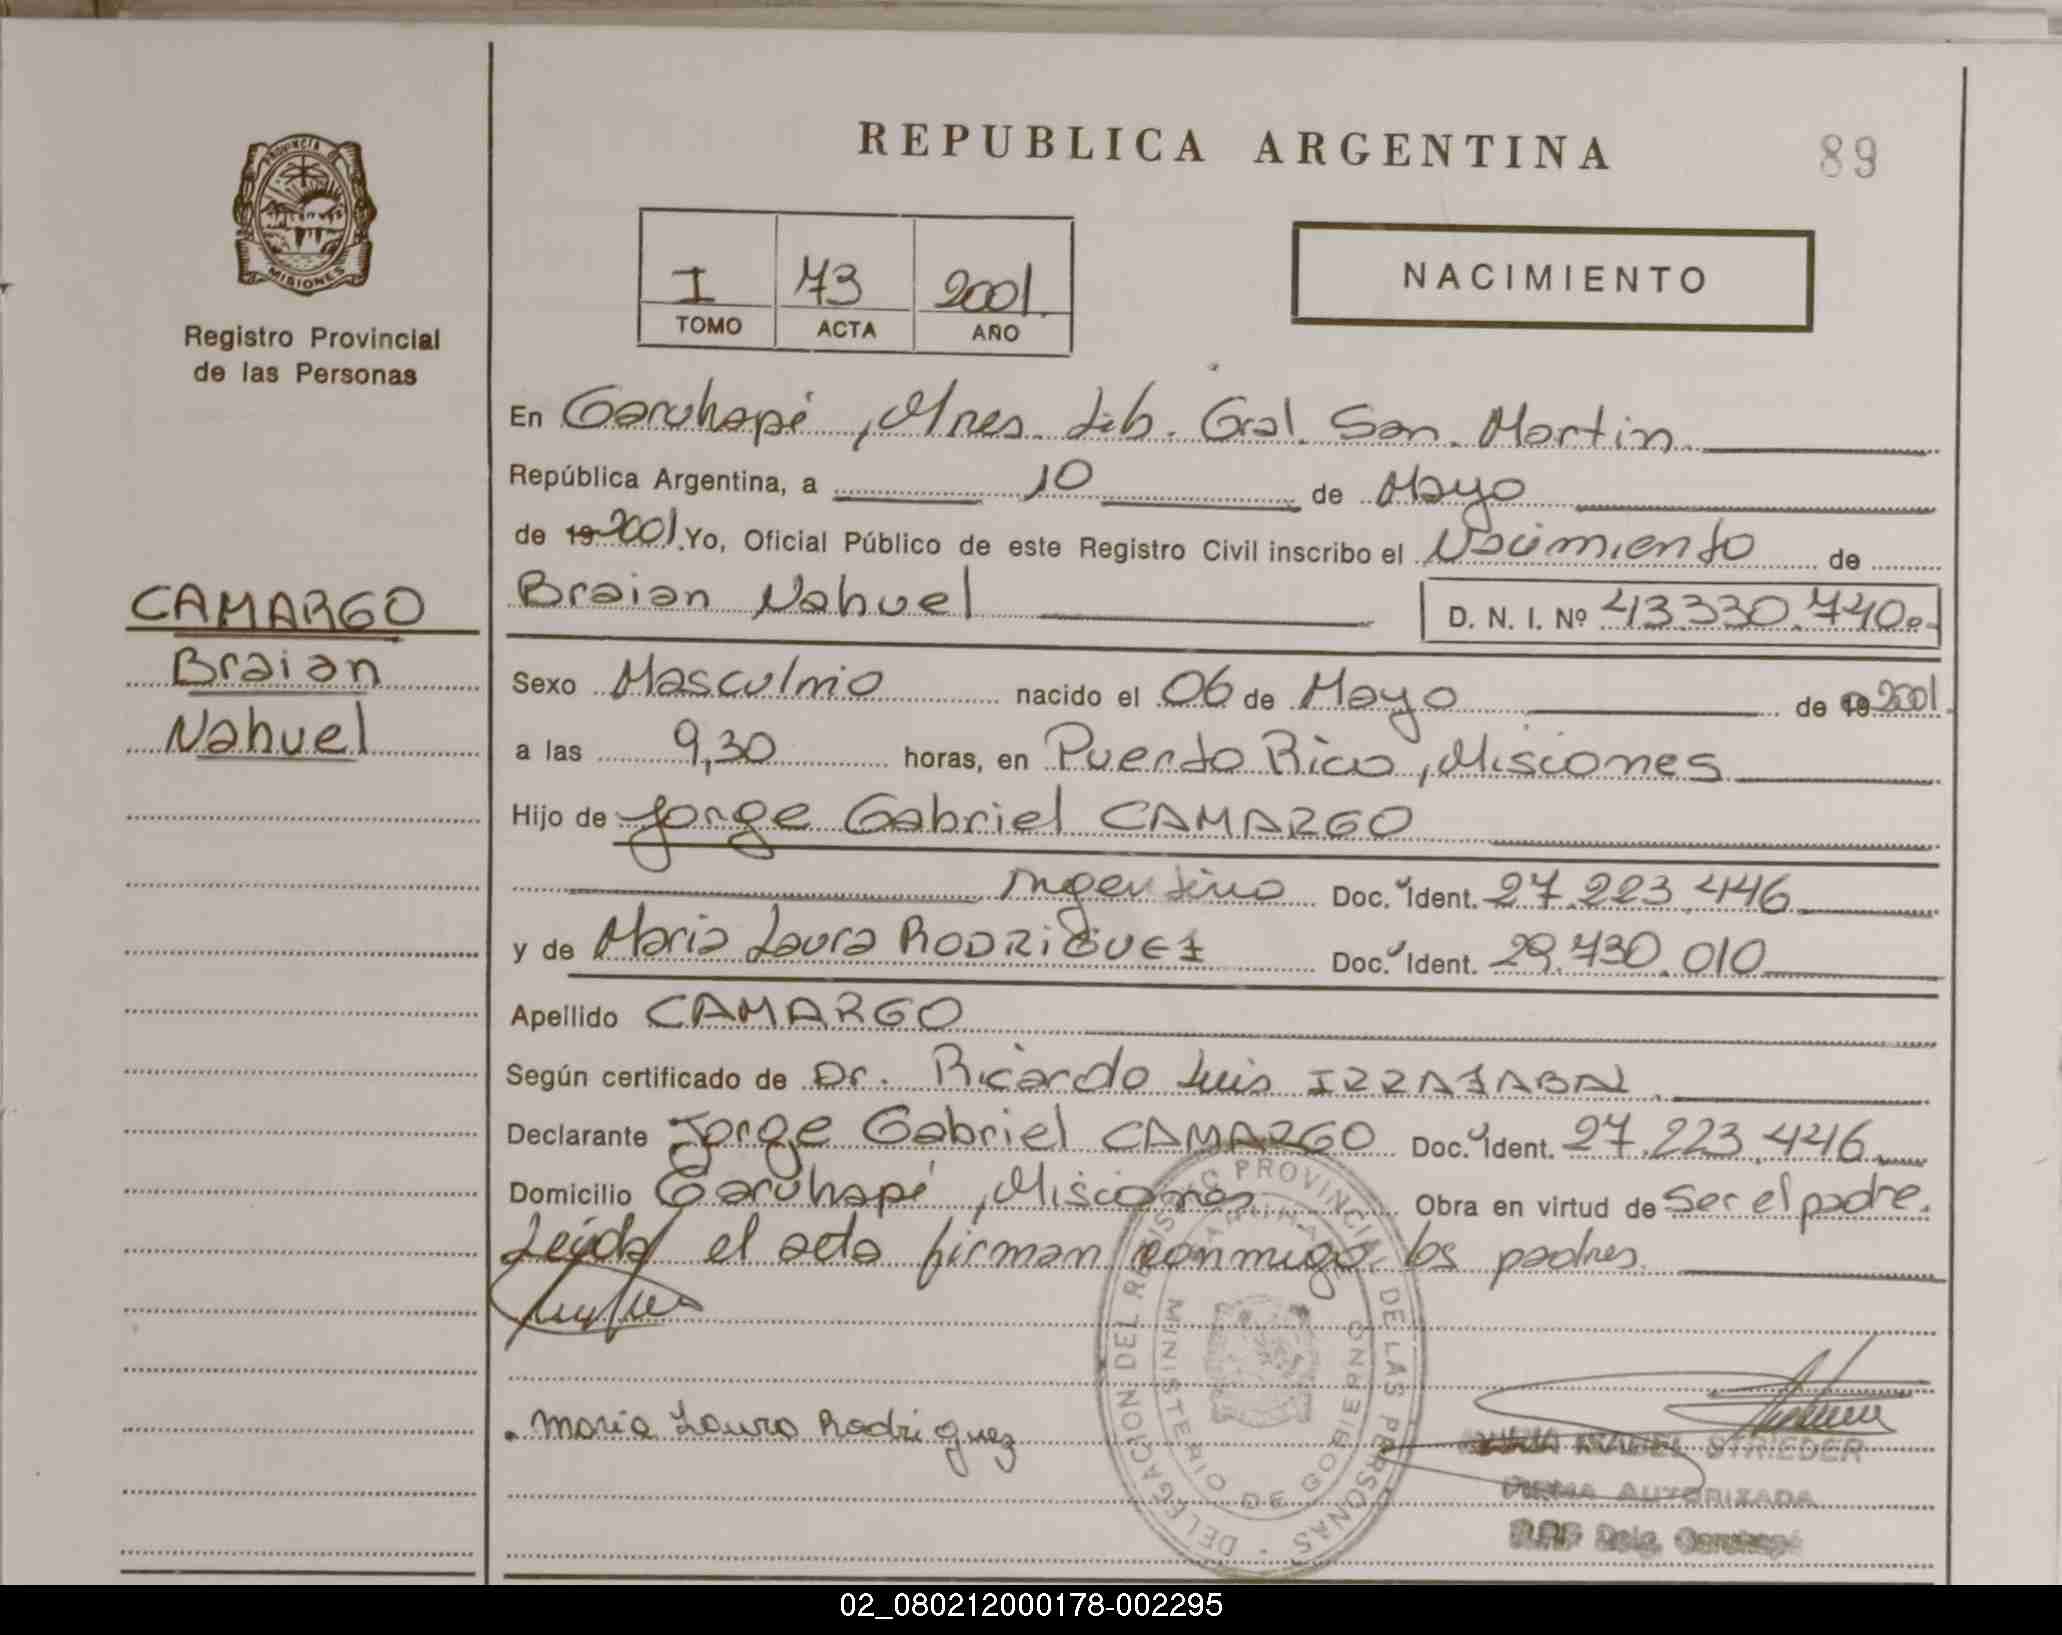 REPUBLICA ARGENTINA
89
PROVINCIA DE
MISIONES
Registro Provincial
de las Personas
I 73 2001.
TOMO ACTA AÑO
NACIMIENTO
En Garuhapé, Mnes. Lib. Gral. San. Martin.
República Argentina, a 10 de Mayo
de 19 2001. Yo, Oficial Público de este Registro Civil inscribo el Nacimiento de
Braian Nahuel D. N. I. Nº 43.330.740.-
CAMARGO
Braian
Nahuel
Sexo Masculino nacido el 06 de Mayo de 19 2001.
a las 9,30 horas, en Puerto Rico, Misiones
Hijo de Jorge Gabriel CAMARGO
Argentino Doc. Ident. 27.223.446
y de Maria Laura RODRIGUEZ Doc. Ident. 29.730.010
Apellido CAMARGO
Según certificado de Dr. Ricardo Luis IRRAZABAL
Declarante Jorge Gabriel CAMARGO Doc. Ident. 27.223.446
Domicilio Garuhapé, Misiones Obra en virtud de Ser el padre.
Leída el acta firman conmigo los padres.
Maria Laura Rodriguez
DELEGACION DEL REGISTRO PROVINCIAL DE LAS PERSONAS
MINISTERIO DE GOBIERNO
ISABEL STRIEDER
FIRMA AUTORIZADA
RPP Deleg. Garuhapé
02_080212000178-002295